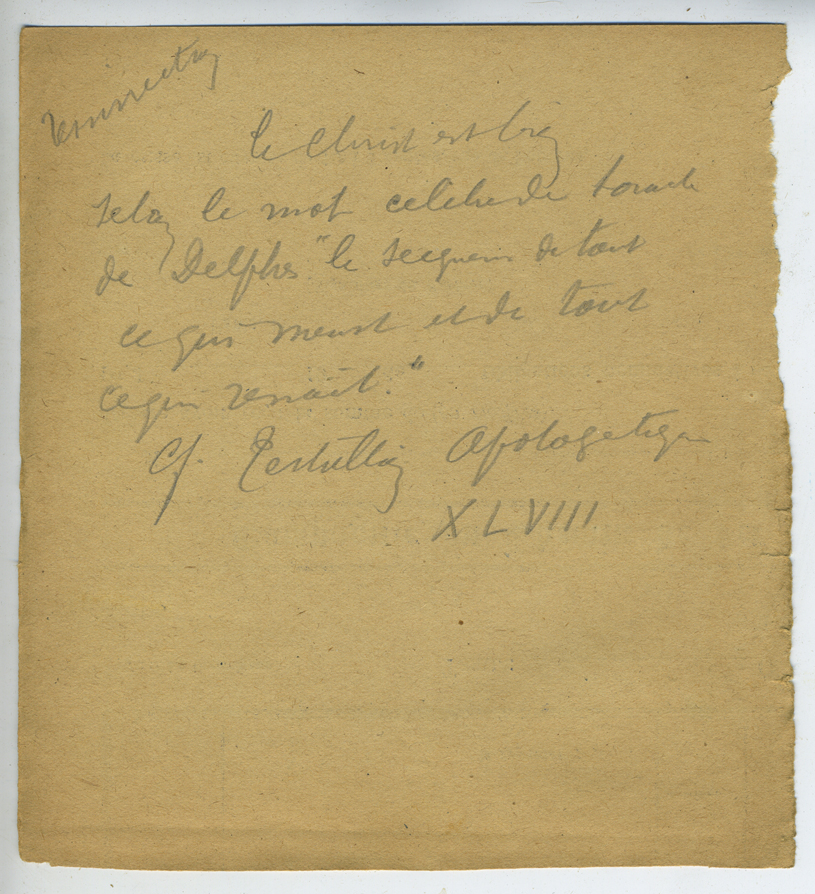 Resurrection
le Christ est bien
selon le mot célèbre de l'oracle
de Delphes "le Seigneur de tout
ce qui meurt et de tout
ce qui renaît."
Cf. Tertullien Apologétique
XLVIII